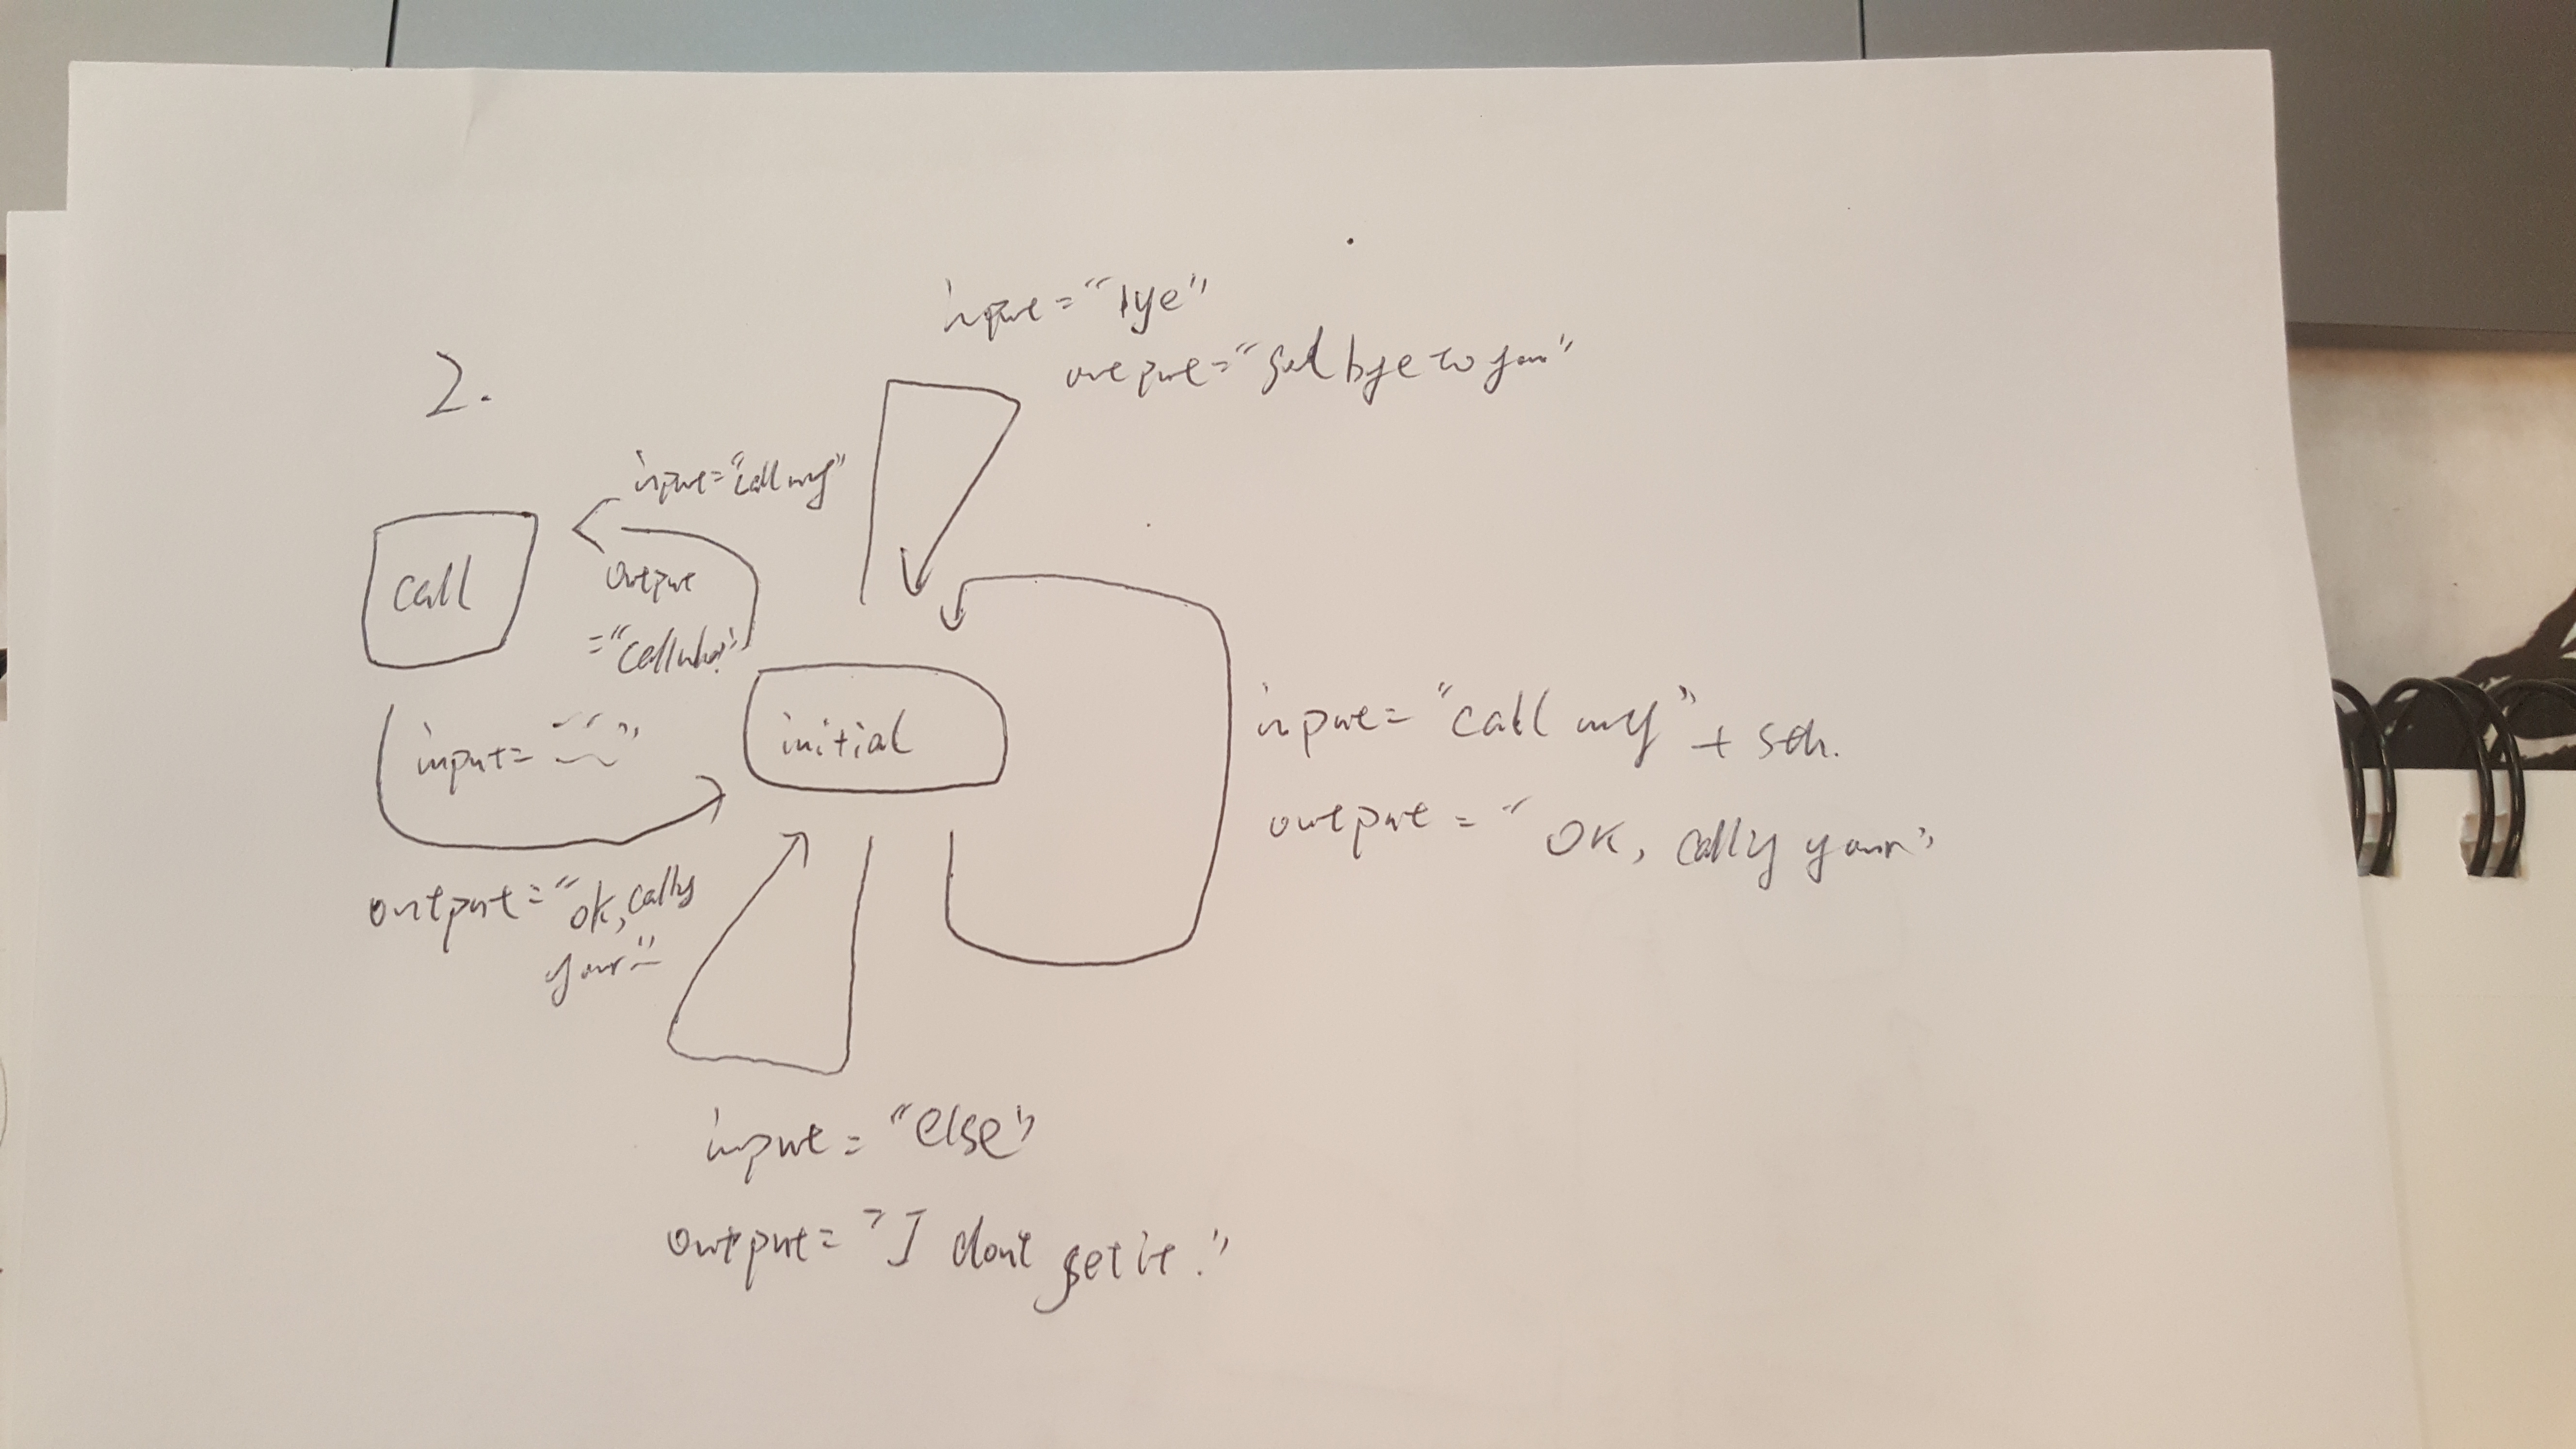 2.
input = "bye"
output = "good bye to you"
input = "call my"
output
= "call who?"
call
initial
input =
output = "ok,
your
input = "call my" + sth.
output = " OK, your"
input = "else"
output = "I don't get it."